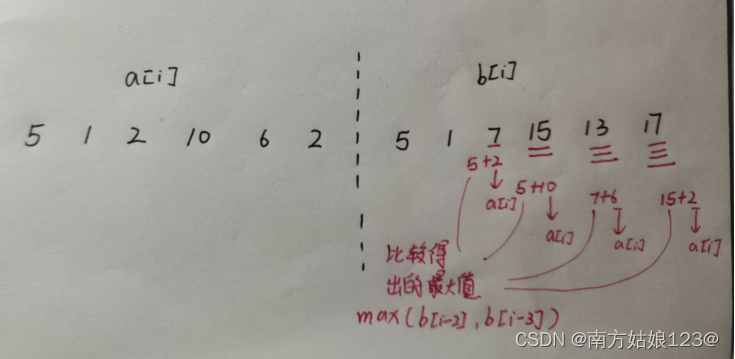 a[i]
b[i]
5 1 2 10 6 2
5 1 7 15 13 17
5+2
a[i]
5+10
a[i]
7+6
a[i]
15+2
a[i]
比较得
出的最大值
max(b[i-2],b[i-3])
CSDN @南方姑娘123@